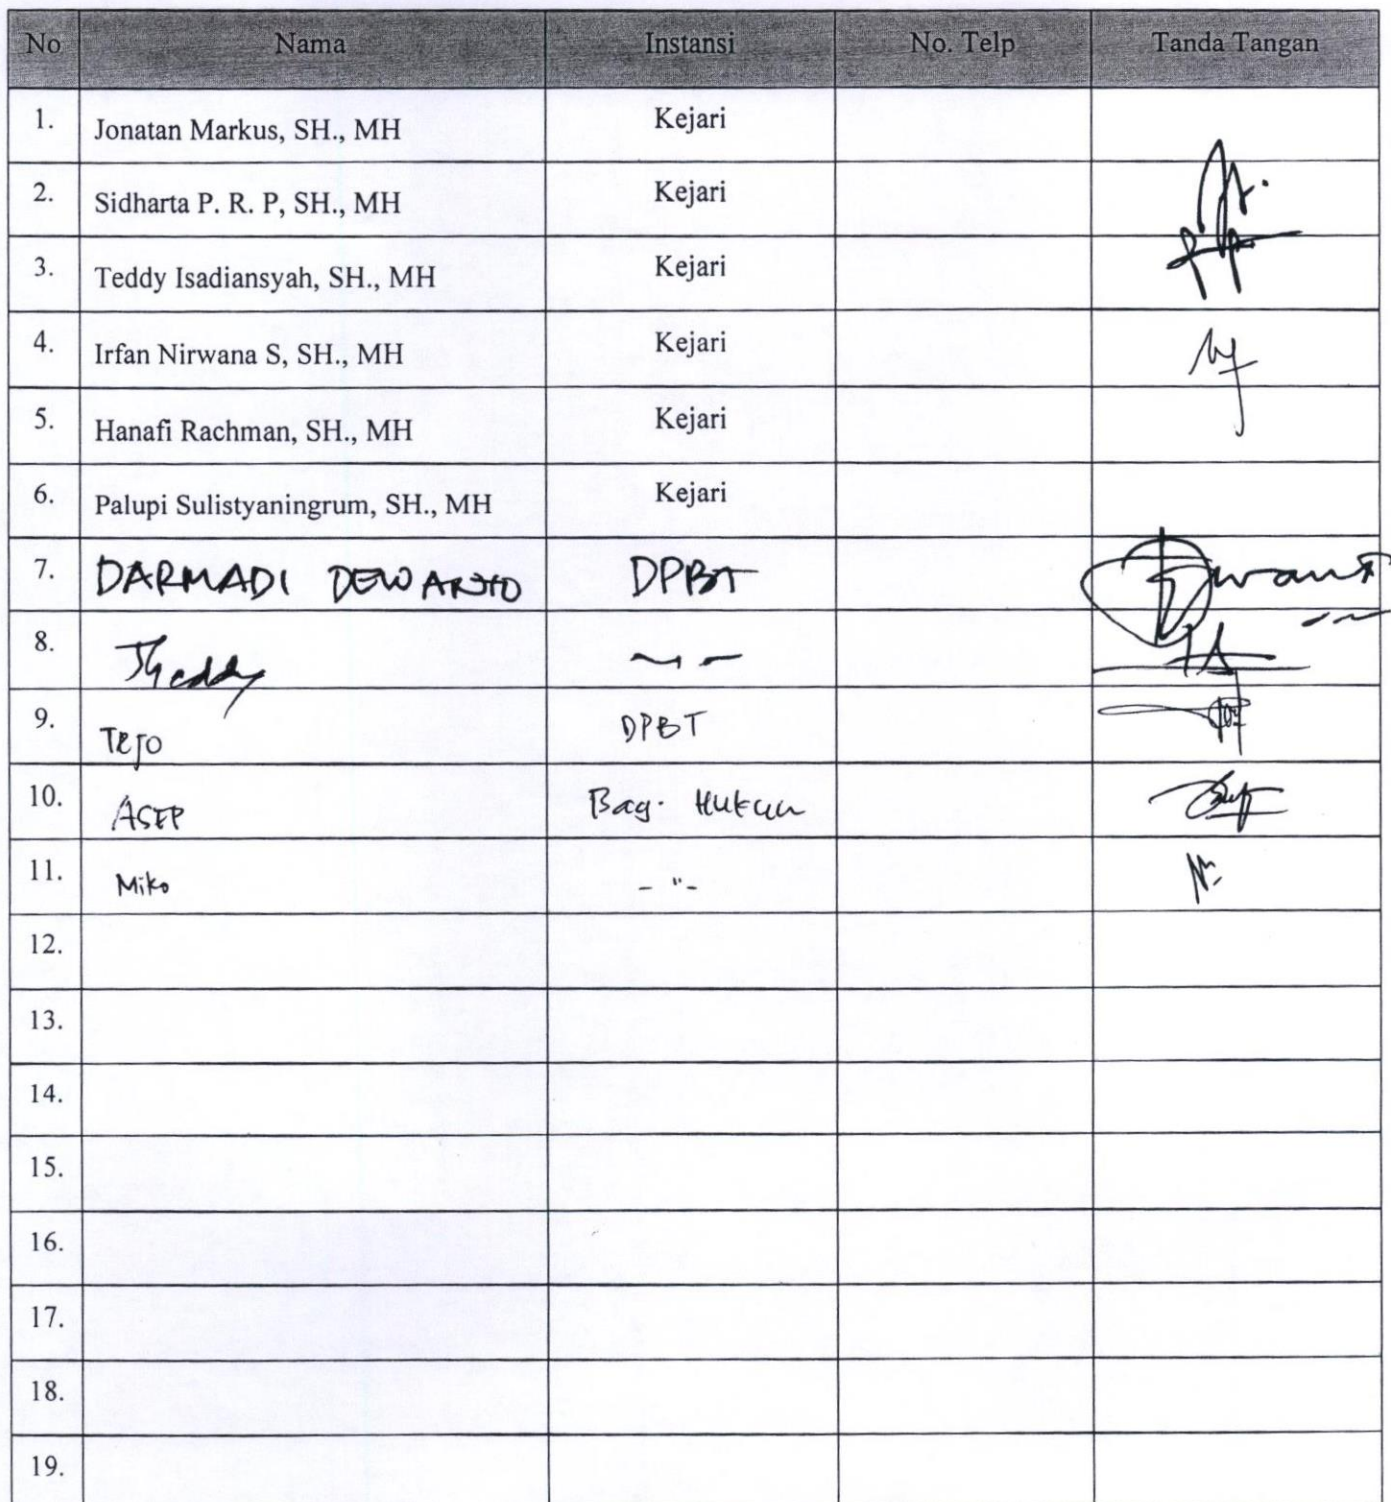 No Nama Instansi No. Telp Tanda Tangan
1. Jonatan Markus, SH., MH Kejari
2. Sidharta P. R. P, SH., MH Kejari
3. Teddy Isadiansyah, SH., MH Kejari
4. Irfan Nirwana S, SH., MH Kejari
5. Hanafi Rachman, SH., MH Kejari
6. Palupi Sulistyaningrum, SH., MH Kejari
7. DARMADI DEWANTO DPBT
8. Theddy
9. Tejo DPBT
10. ASEP Bag. Hukum
11. Miko - " -
12.
13.
14.
15.
16.
17.
18.
19.